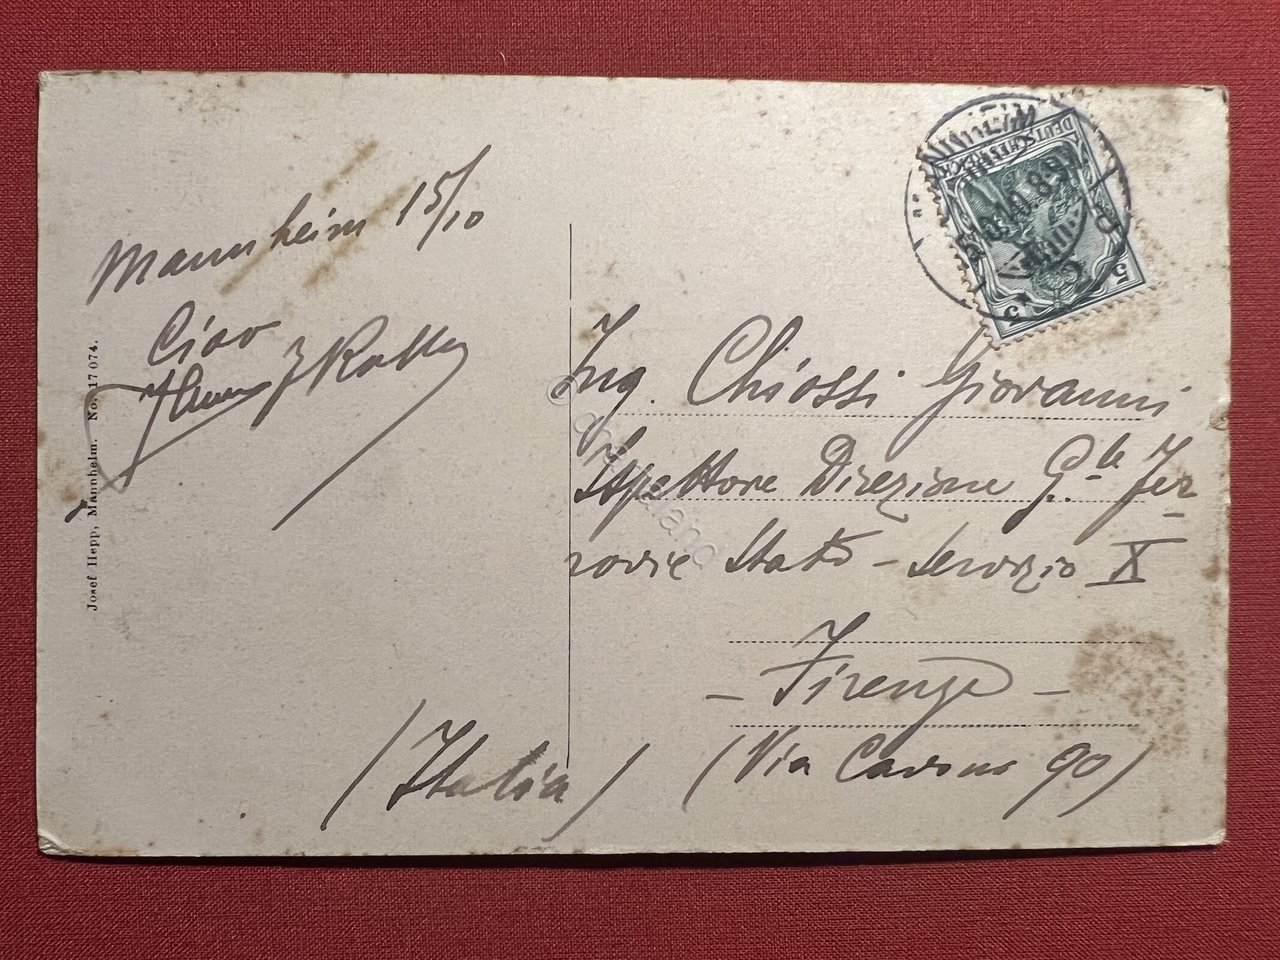 Mannheim 15/10
Ciao
Josef Hepp, Mannheim. No. 17 074.
DEUTSCHES REICH
5 5
Ing. Chiossi Giovanni
Ispettore Direzione G.le Fer
rovie Stato - Servizio X
- Firenze -
(Via Cavour 90)
(Italia)